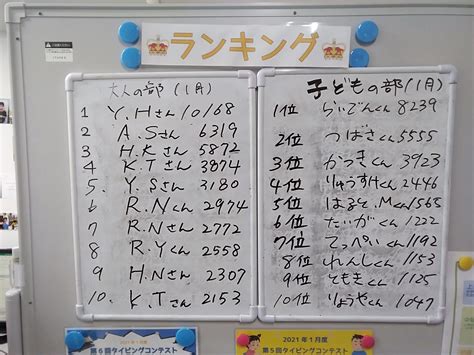 ランキング
大人の部(1月)
1 Y.Hさん 10168
2 A.Sさん 6319
3 H.Kさん 5872
4 K.Tさん 3874
5. Y.Sさん 3180
6 R.Nくん 2974
7 R.Nさん 2772
8 R.Yくん 2558
9 H.Nさん 2307
10. K.Tさん 2153
子どもの部(1月)
1位 らいでんくん 8239
2位 つばさくん 5555
3位 かつきくん 3923
4位 りゅうすけくん 2446
5位 はると.Mくん 1565
6位 たいがくん 1222
7位 てっぺいくん 1192
8位 れんしくん 1153
9位 ともきくん 1125
10位 りょうやくん 1047
2021年1月度
第6回タイピングコンテスト
2021年1月度
第5回タイピングコンテスト